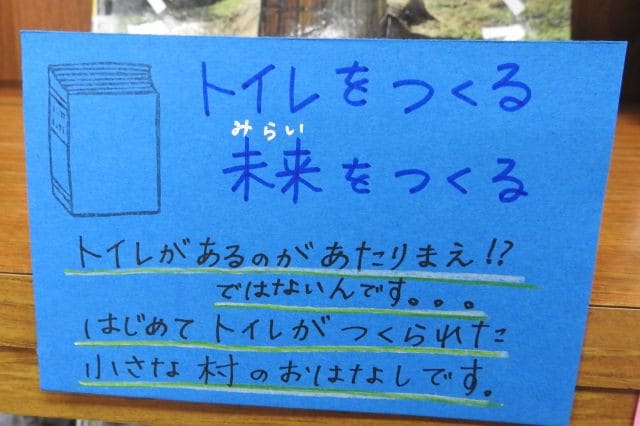 トイレをつくる
みらい
未来をつくる
トイレがあるのがあたりまえ!?
ではないんです。。。
はじめてトイレがつくられた
小さな村のおはなしです。